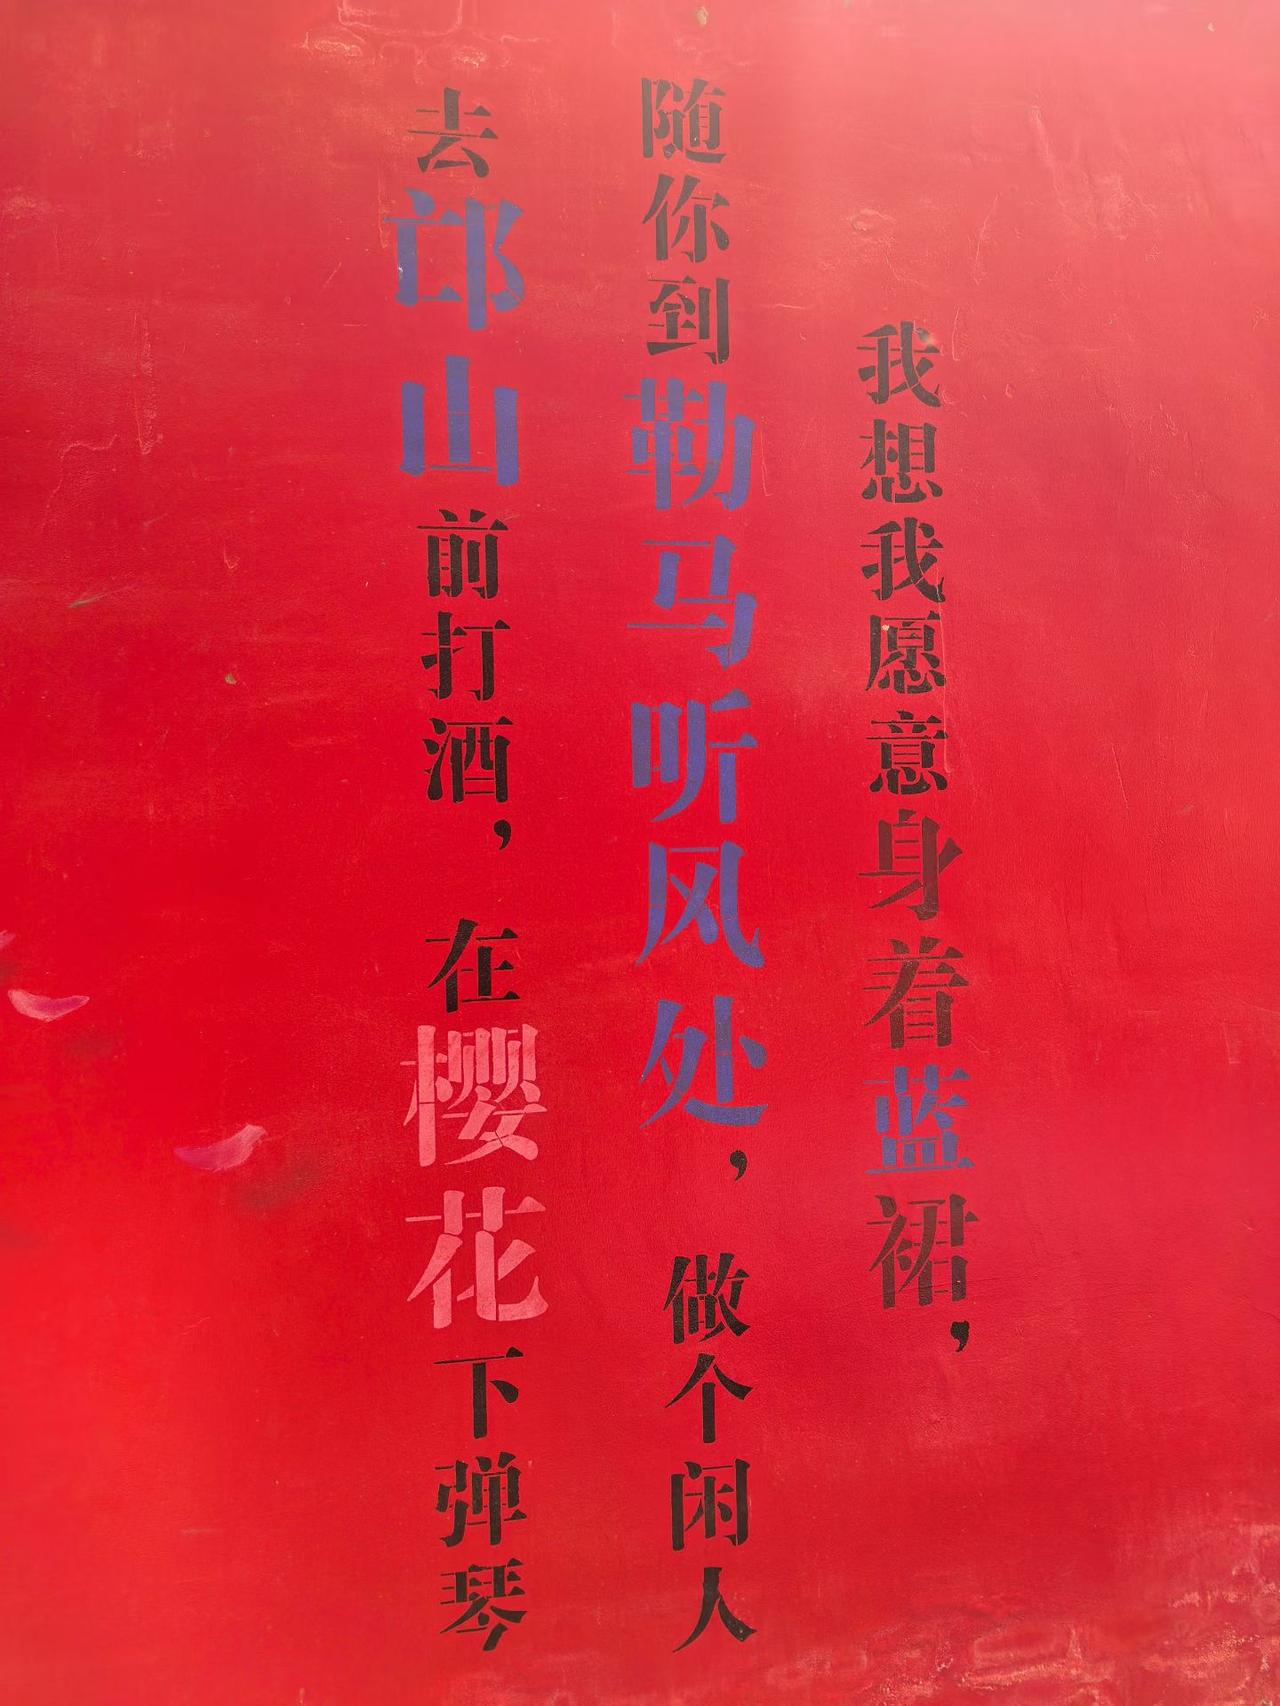 我想我愿意身着蓝裙，
随你到勒马听风处，做个闲人
去邙山前打酒，在樱花下弹琴